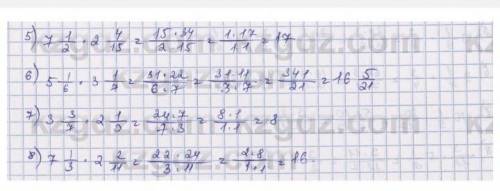 5) 7 1/2 · 2 4/15 = 15·34/2·15 = 1·17/1·1 = 17
6) 5 1/6 · 3 1/7 = 31·22/6·7 = 31·11/3·7 = 341/21 = 16 5/21
7) 3 3/7 · 2 1/3 = 24·7/7·3 = 8·1/1·1 = 8
8) 7 1/3 · 2 2/11 = 22·24/3·11 = 2·8/1·1 = 16.